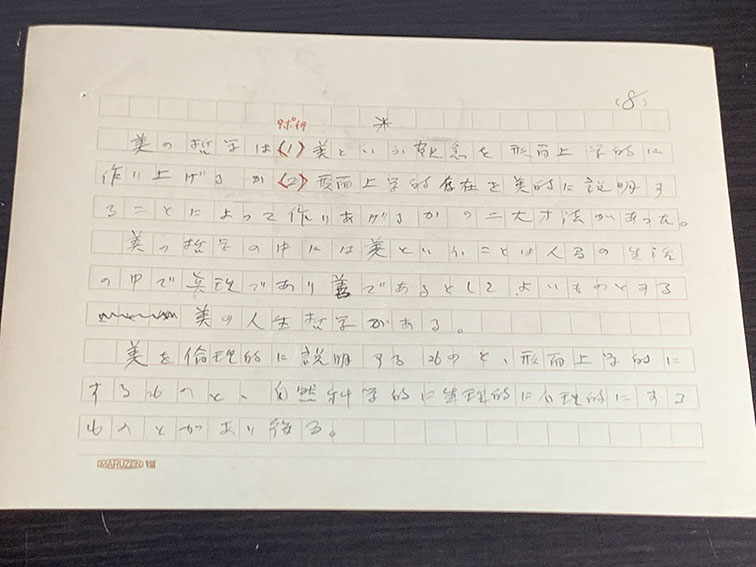 (8)
9ポ
*
美の哲学は(1)美といふ観念を形而上学的に
作り上げるか(2)形而上学的存在を美的に説明す
ることによって作りあげるかの二大方法があった。
美の哲学の中には美といふことは人間の生活
の中で真理であり善であるとしてよいものとする
美の人生哲学がある。
美を倫理的に説明するものと、形而上学的に
するものと、自然科学的に生理的に心理的にする
ものとがあり得る。
MARUZEN VIII